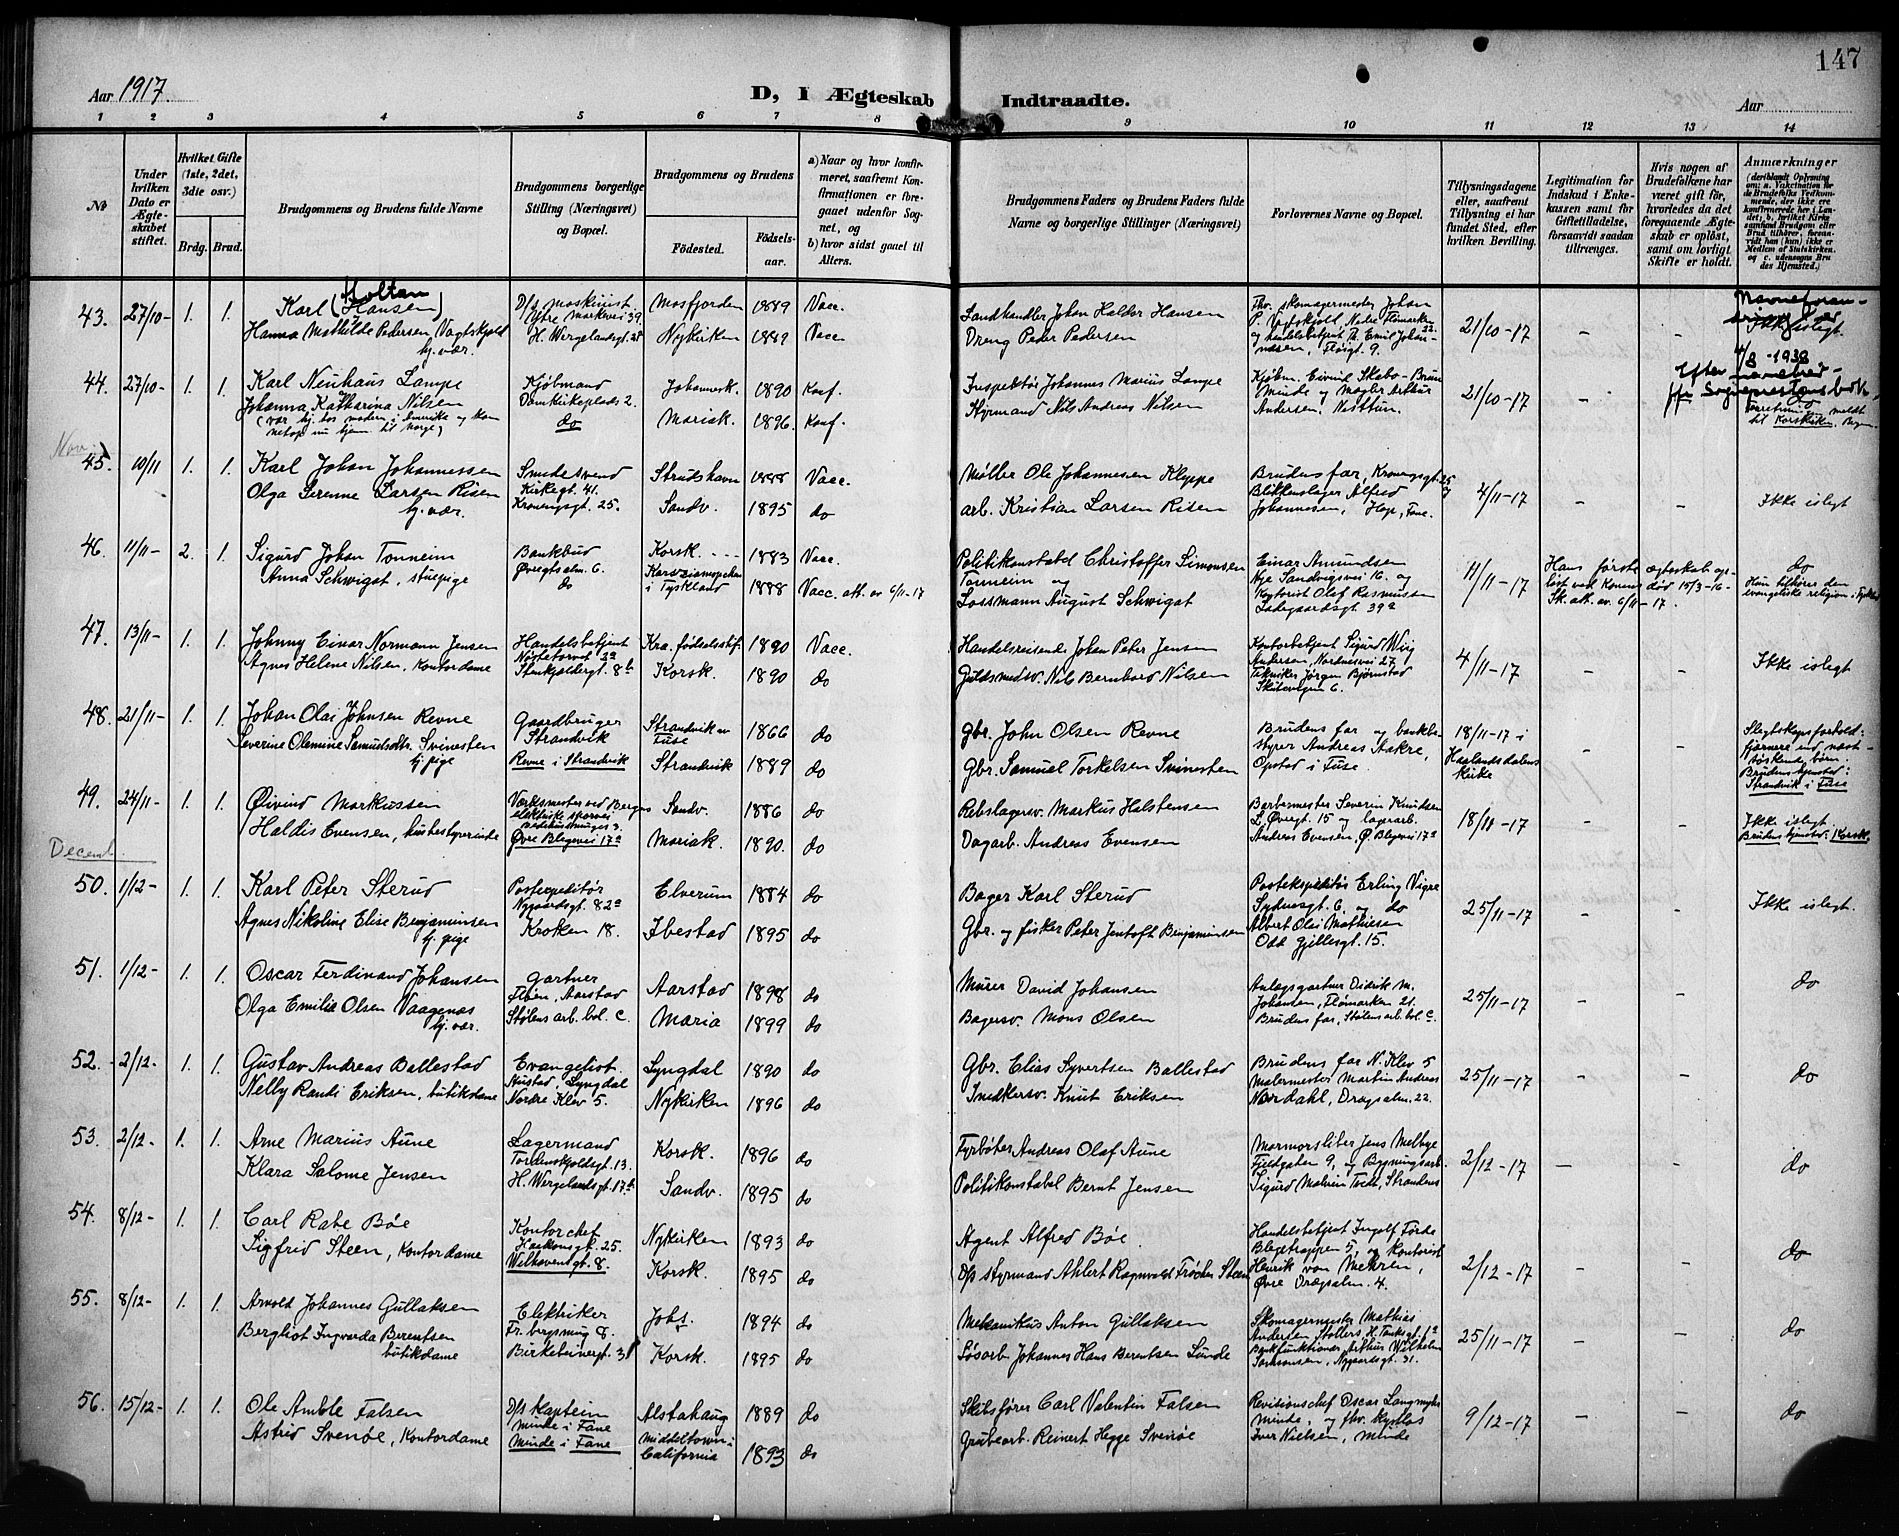 147
Aar 1917.
D, i Ægteskab Indtraadte.
Aar
1 2 3 4 5 6 7 8 9 10 11 12 13 14
No
Under hvilken Dato er Ægteskabet stiftet.
Hvilket Gifte (1ste, 2det, 3die osv.)
Brdg. Brud.
Brudgommens og Brudens fulde Navne
Brudgommens borgerlige Stilling (Næringsvei) og Bopæl.
Brudgommens og Brudens
Fødested. Fødselsaar.
a) Naar og hvor konfirmeret, saafremt Konfirmationen er foregaaet udenfor Sognet, og
b) hvor sidst gaaet til Alters.
Brudgommens Faders og Brudens Faders fulde Navne og borgerlige Stillinger (Næringsvei)
Forlovernes Navne og Bopæl.
Tillysningsdagene eller, saafremt Tillysning ei har fundet Sted, efter hvilken Bevilling.
Legitimation for Indskud i Enkekassen samt for Giftetilladelse, forsaavidt saadan tiltrænges.
Hvis nogen af Brudefolkene har været gift før, hvorledes da det foregaaende Ægteskab er opløst, samt om lovligt Skifte er holdt.
Anmærkninger
43. 27/10- 1. 1. Karl (Hansen) Holtan D/s maskinist Ytre Markevei 39 Mosfjorden 1889 Vacc. Landhandler Johan Haldor Hansen Fhv. skomagermester Johan 21/10-17 - - Ikke islegt.
Hanna Mathilde Pedersen Vagtskjold hj. vær. H. Wergelandsgt. 28 Nykirken 1889 Vacc. Dreng Peder Pedersen
4/8-1938
44. 27/10- 1. 1. Karl Neuhaus Lampe Kjøbmand Domkirkeplads 2. Johannesk. 1890 Konf. Inspektør Johannes Marius Lampe Kjøbm. Eivind Skabo-Brun Minde og Magler Arthur Andersen, Nattun. 21/10-17 - - do
Johanna Katharina Nilsen do Mariak. 1896. Konf. Styrmand Nils Andreas Nilsen
(vær hj. hos moderen i Amerika og kom netop nu hjem til Norge)
Nov.
45. 10/11 1. 1. Karl Johan Johannessen Smedesvend Kirkegt. 41. Strudshavn 1888 Vacc. Møller Ole Johannesen Kleppe Brudens far, Kroningsgt. 25 Blikkenslager Alfred Johannesen, Hop, Fane. 4/11-17 - - Ikke islegt
Olga Serenne Larsen Risen hj. vær. Kroningsgt. 25. Sandv. 1895 do arb. Kristian Larsen Risen
46. 11/11- 2. 1. Sigurd Johan Tonneim Bankbud Øvregtsalm. 6. Korsk. 1883 Vacc. Politikonstabel Christoffer Simonsen Tonneim og Einar Amundsen Nye Sandvigsvei 16. og 11/11-17 Hans første ægteskab opløst ved Konens død 15/3-16- Sk. att. av. 6/11-17. do
Anna Schwigat, stuepige do i Tyskland 1888 Vacc. att. av 6/11-17 Lossmann August Schwigat Olaf Rasmussen Ladegaardsgt 39a Hun tilhører den evangeliske religion i Tyskland
47. 13/11- 1. 1. Johnny Einar Normann Jensen Handelsbetjent Nøstetorvet 3a Kra. fødselsstif. 1890 Vacc. Handelsreisende Johan Peter Jensen Kontorbetjent Sigurd Wiig Andersen, Nordnesvei 27 4/11-17 - - Ikke islegt
Agnes Helene Nilsen, Kontordame Stenkjeldergt 8b Korsk. 1890 do Guldsmedsv. Nils Bernhard Nilsen Tekniker Jørgen Bjørnstad Skitvegen 6.
48. 21/11- 1. 1. Johan Olai Johnsen Revne Gaardbruger Strandvik Strandvik av Fuse 1866 do Gbr. John Olsen Revne Brudens far og bankbestyrer Andreas Aakre, Opstad i Fuse. 18/11-17 i Haalandsdalens kirke - - Slegtskapsforhold fjærnere end næstsøskendebørn. Brudens hjemsted: Strandvik i Fuse
Severine Olemine Samuelsdtr. Svinesten hj. pige Revne i Strandvik Strandvik 1889 do Gbr. Samuel Torkelsen Svinesten
49. 24/11- 1. 1. Øivind Markussen Værksmester ved Bergens elektriske sporvei Sandv. 1886 do Rebslagersv. Markus Halstensen Barbermester Severin Knudsen L. Øvregt. 15 og lagerarb. Andreas Evensen, Ø. Blegevei 17a 18/11-17 - - Ikke islegt. Brudens hjemsted: Korsk.
Haldis Evensen, husbestyrerinde Øvre Blegevei 17a Mariak. 1890. do Dagarb. Andreas Evensen
Decemb.
50. 1/12- 1. 1. Karl Peter Sterud Postexpeditør Nygaardsgt. 82a Elverum 1884 do Bager Karl Sterud Postekspeditør Erling Vigre Sydnesgt. 6. og do Albert Olai Mathiesen Odd Gjellesgt. 15. 25/11-17 - - Ikke islegt.
Agnes Nikoline Elise Benjaminsen hj. pige Kroken 18. Ibestad 1895 do Gbr. og fisker Peter Jentoft Benjaminsen
51. 1/12- 1. 1. Oscar Ferdinand Johansen Gartner Fløen, Aarstad Aarstad 1898 do Murer David Johansen Anlægsgartner Didrik M. Johansen, Flømarken 21. Brudens far, Stølens arb. bol. C. 25/11-17 - - do
Olga Emilia Olsen Vaagenæs hj. vær. Stølens arb. bol. C. Maria 1899 do Bagersv. Mons Olsen
52. 2/12- 1. 1. Gustav Andreas Ballestad Evangelist. Austad, Lyngdal Lyngdal 1890 do Gbr. Elias Syvertsen Ballestad Brudens far N. Klev 5 Malermester Martin Andreas Nordahl, Dragsalm. 22. 25/11-17 - - do
Nelly Randi Eriksen, butikdame Nordre Klev 5. Nykirken 1896 do Snedkersv. Knut Eriksen
53. 2/12- 1. 1. Arne Marius Aune Lagermand Tordenskjoldsgt. 13. Korsk. 1896 do Fyrbøter Andreas Olaf Aune Marmorsliber Jens Melbye Fjeldgaten 9, og Bygningsarb. Sigurd 2/12-17 - - do
Klara Salome Jensen H. Wergelandsgt. 17b Sandv. 1895 do Politikonstabel Bernt Jensen
54. 8/12- 1. 1. Carl Rabe Bøe Kontorchef Haakonsgt. 25. Nykirken 1893 do Agent Alfred Bøe. Handelsbetjent Ingolf Førde Blegetrappen 5, og Kontorist Henrik von Mehren, Øvre Dragsalm. 4. 2/12-17 - - do
Sigfrid Steen, Kontordame Welhavensgt. 8. Korsk. 1895 do D/s styrmand Ahlert Ragnvald Frøchen Steen
55. 8/12- 1. 1. Arvold Johannes Gullaksen Elektriker Johs. 1894 do Mekanikus Anton Gullaksen Skomagermester Mathias Andersen 25/11-17 - - do
Bergliot Ingvarda Berentsen butikdame Birkebeinergt. 31 Korsk. 1895 do Løsarb. Johannes Hans Berentsen Lunde Nygaardsgt. 31.
56. 15/12- 1. 1. Ole Amble Falsen D/s Kaptein Minde i Fane Alstahaug 1889 do Skibsfører Carl Valentin Falsen Revisionschef Oscar Langmyhr Minde, og fhv. Iver Nielsen, Minde 9/12-17 - - do
Astrid Svenøe, Kontordame Minde i Fane Middeltown i California 1893 do Grubearb. Reinert Hegge Svenøe